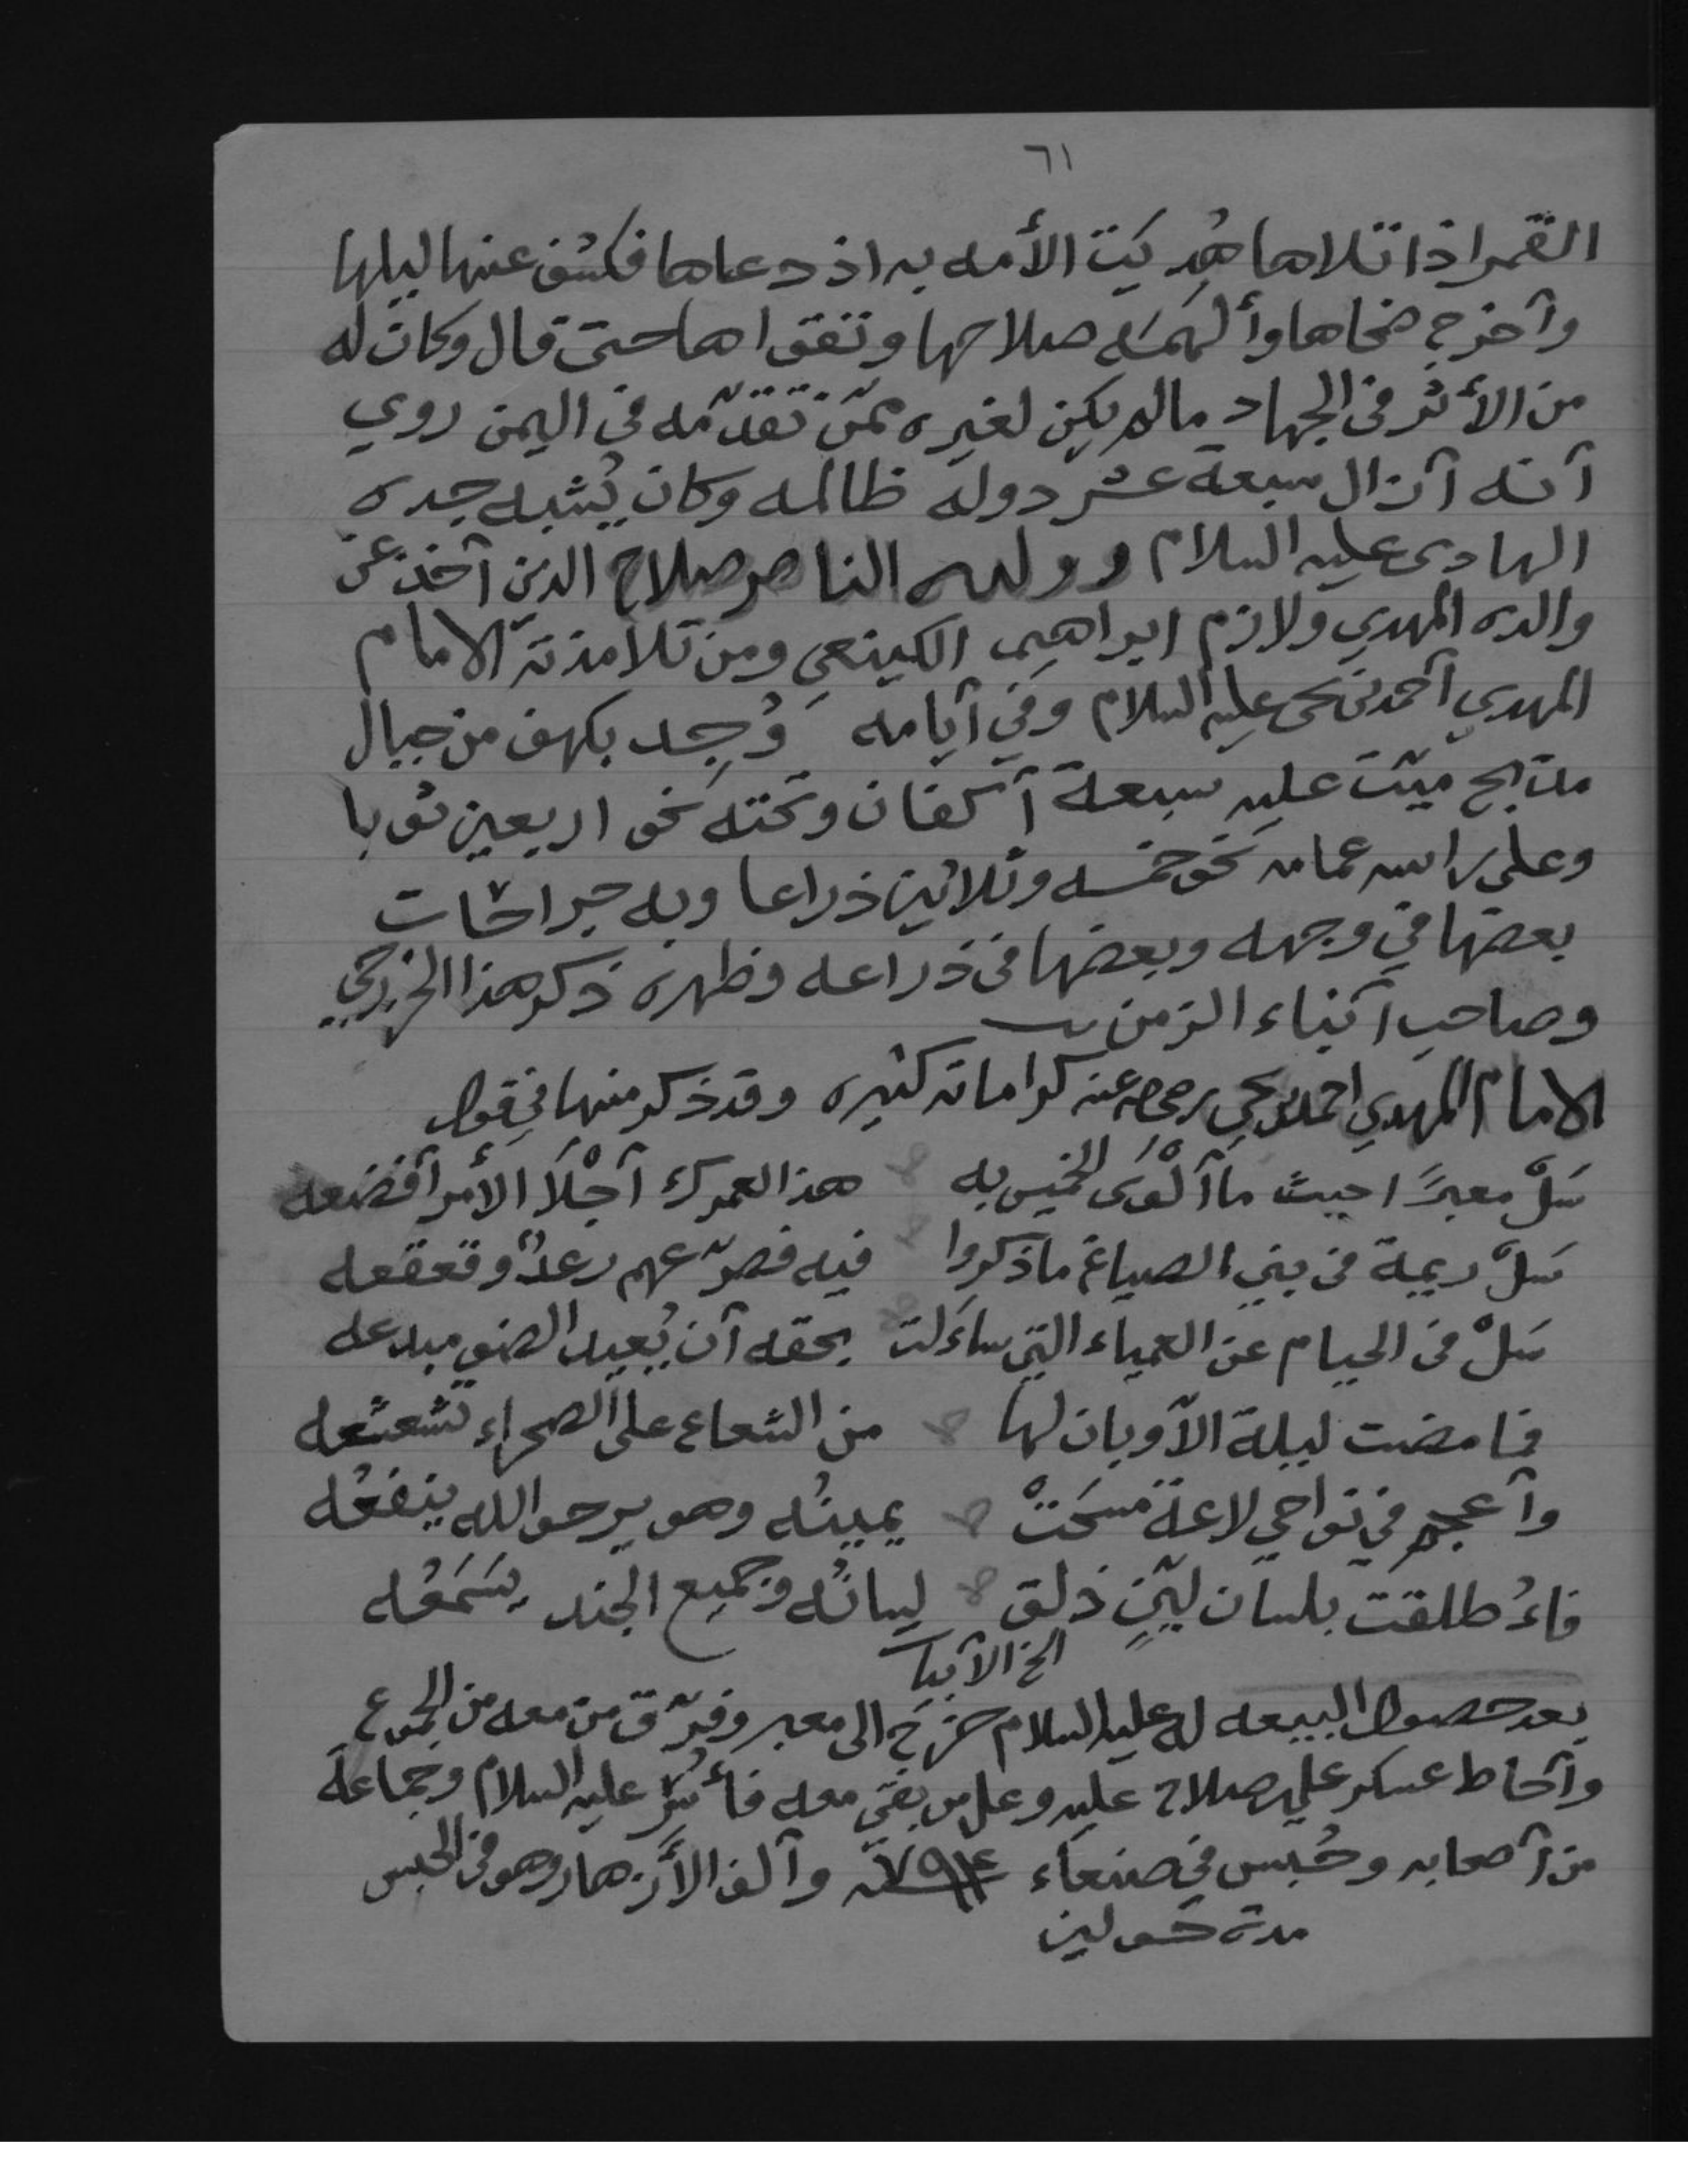 ٦١
القمر اذا تلاها هُديَت الأمه به اذ دعاها فكشف عنها ليلها
وآخرج ضحاها وألهمَه صلاحها وتقواها حتى قال وكان له
من الأثر في الجهاد مالم يكن لغيره ممّن تقدّمه في اليمن روي
آنه آزال سبعة عشر دوله ظالمه وكان يُشبه جده
الهادي عليه السلام وولده الناصر صلاح الدين آخذ عن
والده المهدي ولازم ابراهيم الكينعي ومن تلامذته الامام
المهدي آحمد بن يحي عليه السلام وفي آيامه وُجد بكهف من جبال
ميّت عليه سبعة آكفان وتحته نحو اربعين ثوبا
وعلى راسه عمامه نحو خمسه وثلاثين ذراعا وبه جراحات
بعضها في وجهه وبعضها في ذراعه وظهره ذكر هذا الخزرجي
وصاحب آنباء الزمن
الامام المهدي احمد بن يحي رضي الله عنه كراماته كثيره وقد ذكر منها في قوله
سَلْ معبرًا حيث ما آلْوَى الخميس به هذا لعمرك آجْلَا الأمر آفضعه
سَلْ ريمة في بني الصياغ ما ذكروا فيه فصرّعهم رعدٌ وقعقعه
سَلْ في الحيام عن العمياء التي ساءَلت بحقه آن يُعيد الضو مبدعه
فما مضت ليلة الآ وبان لها من الشعاع على الصحراء تشعشعه
وآعجم في نواحي لاعة مسَحَتْ يمينُه وهو يرجو الله ينفعُه
فاءُطلقت بلسان ليّنٍ ذلق لسانُه وجميع الجند يسَمَعُه
الخ الآبيات
بعد حصول البيعه له عليه السلام خرج الى معبر وفرّق من معه من الجموع
وآحاط عسكر علي صلاح عليه وعلى من بقى معه فأُسر عليه السلام وجماعه
من آصحابه وحُبس في صنعاء ٧٩٤ وآلف الأزهار وهو في الحبس
مدة حولين